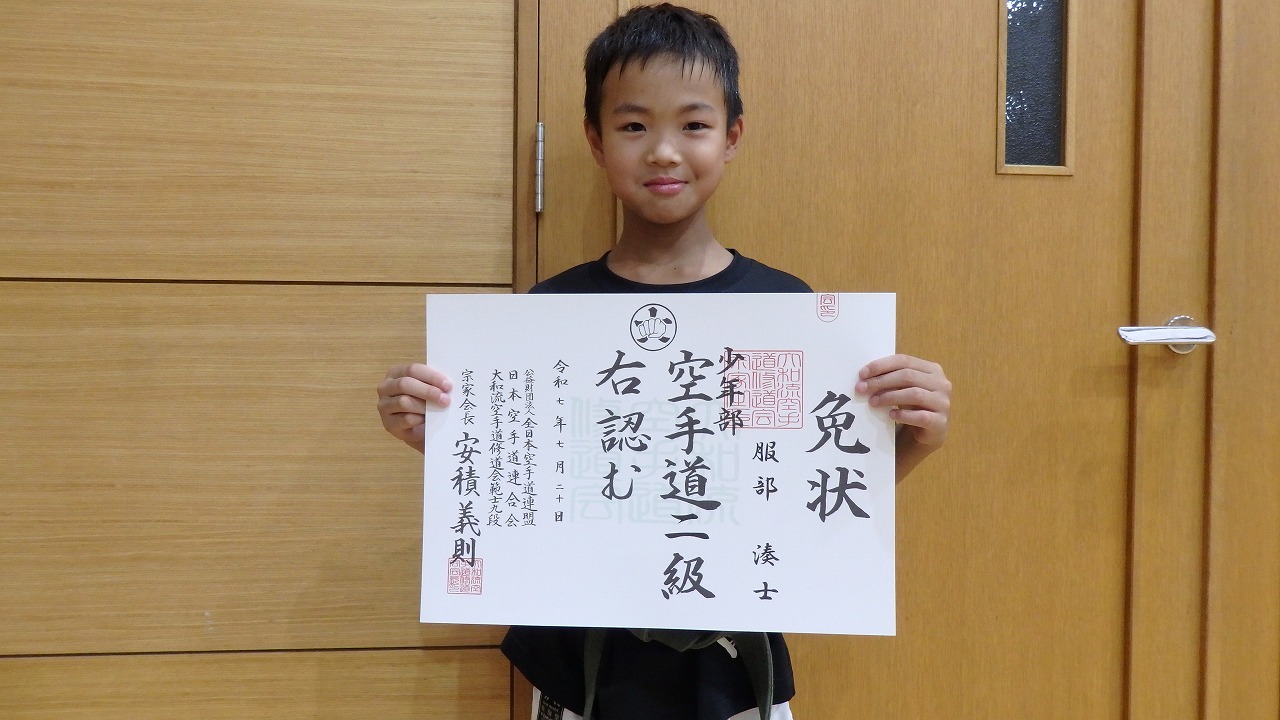 免状
服部 湊士
少年部
空手道二級
右認む
令和七年七月二十日
公益財団法人全日本空手道連盟
日本空手道連合会
大和流空手道修道会範士九段
宗家会長 安積義則